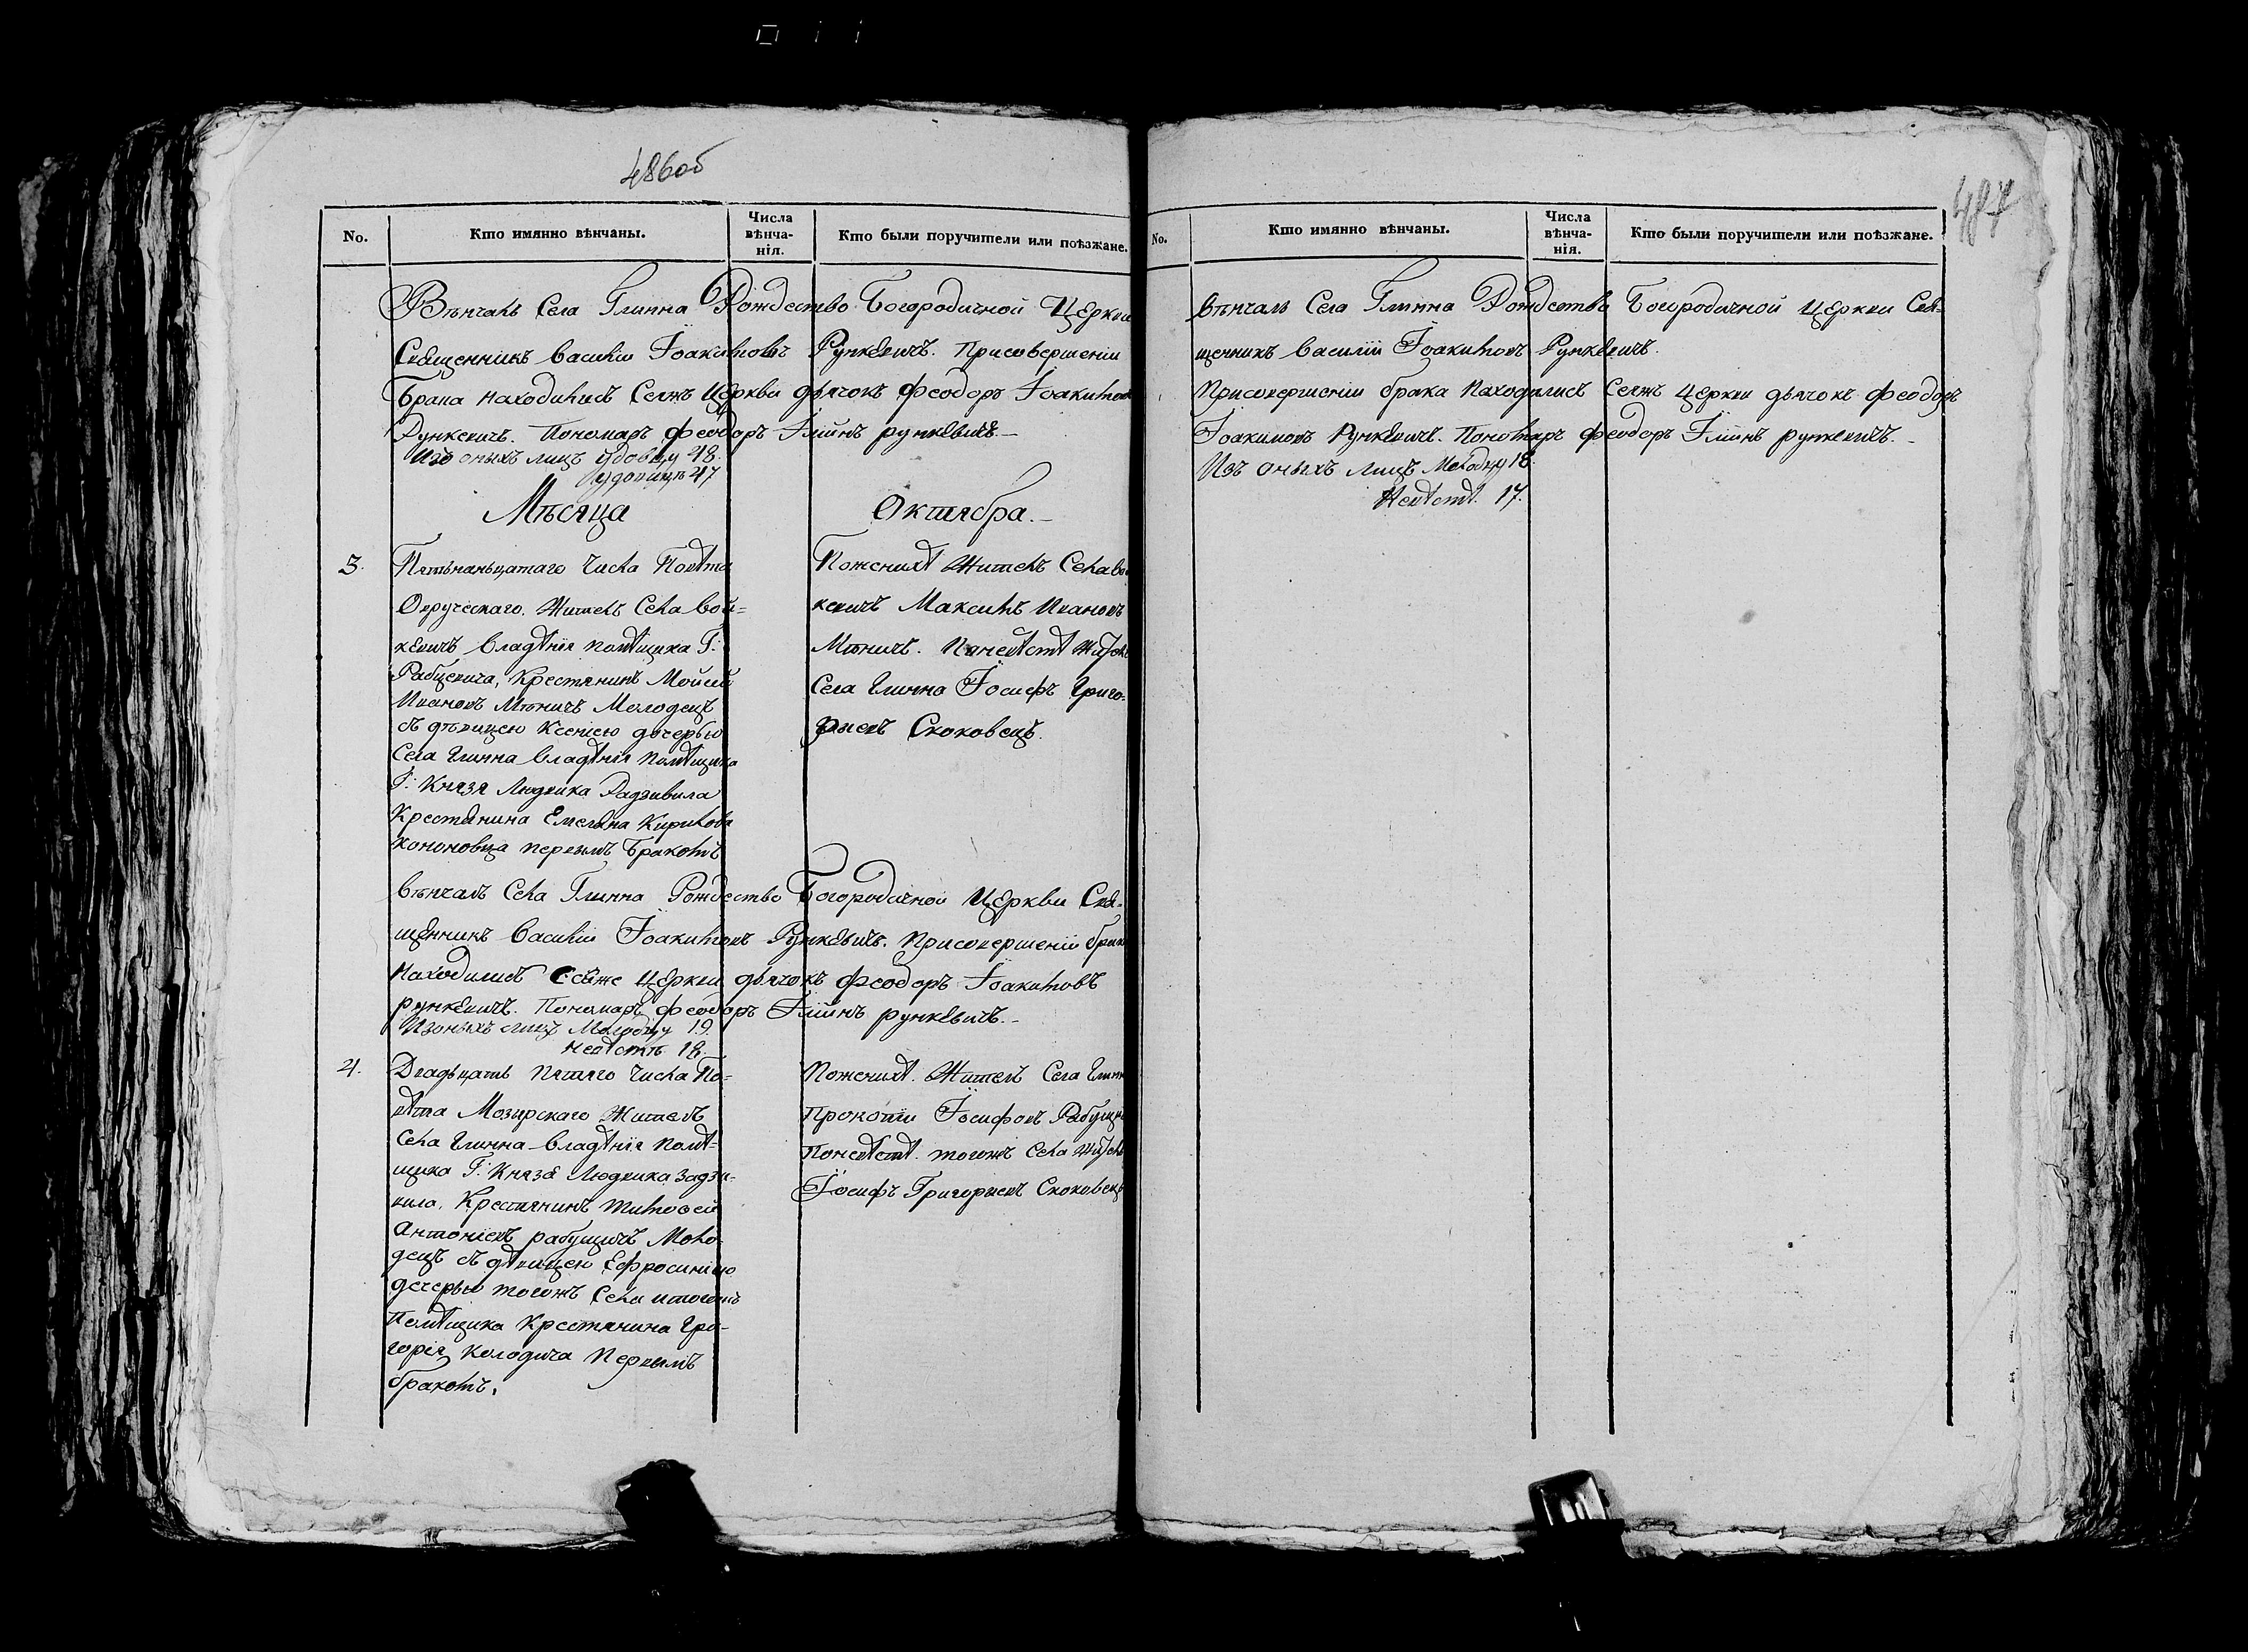 486об
No.
Кто имянно вѣнчаны.
Числа
вѣнча-
нія.
Кто были поручители или поѣзжане.
Вѣнчалъ Села Глинна Рождество Богородичной Церкви
Священникъ Василій Іоакимовъ Рункевичъ. Присовершеніи
Брака находились Сеяжъ Церкви дьячокъ Феодоръ Іоакимов
Рункевичъ. Пономаръ Феодоръ Іліинъ рункевичъ.
Изъ оныхъ лицъ удовцу 48.
удовицѣ 47
Мѣсяца Октября.
3.
Пятьнаньцатаго Числа Повѣта
Овруческаго. Жителъ Села Вой-
кевичъ Владѣнія помѣщика Г:
Рабцевича, Крестянинъ Мойсей
Ивановъ Мѣничъ Молодецъ
съ дѣвицею Ксеніею дочерью
Села Глинна Владѣнія помѣщика
Г: Князя Людвика Радзивила
Крестянина Емеляна Кирилова
Кононовца первымъ Бракомъ
Поженихѣ Жителъ Села Во
кевичъ Максимъ Ивановъ
Мѣничъ. Поневѣстѣ
Села Глинна Іосифъ Григо-
риевъ Скоковецъ.
Вѣнчалъ Села Глинна Рождество Богородичной Церкви Свя-
щенникъ Василій Іоакимовъ Рункевичъ. Присовершеніи брак
Находились Сеяже Церкви дьячокъ Феодоръ Іоакимовъ
рункевичъ. Пономаръ Феодоръ Іліинъ рункевичъ.
Изоныхъ лицъ Молодцу 19.
невѣстѣ 18.
4.
Двадьцать пятаго Числа По-
вѣта Мозирскаго Жителъ
Села Глинна Владѣнія помѣ-
щика Г: Князя Людвика Радзи-
вила, Крестянинъ Тимофей
Антоніевъ рабущичъ Моло-
децъ съ дѣвицею Ефросиніею
дочерью тогожъ Села итогожъ
Помѣщика Крестянина Гри-
горія Колодича Первымъ
бракомъ.
Поженихѣ. Жителъ Села Глин
Прокопій Іосифовъ
Поневѣстѣ. тогожъ Села
Іосифъ Григориевъ Скоковецъ
487
No.
Кто имянно вѣнчаны.
Числа
вѣнча-
нія.
Кто были поручители или поѣзжане.
Вѣнчалъ Села Глинна Рождество Богородичной Церкви Свя-
щенникъ Василій Іоакимовъ Рункевичъ.
Присовершеніи брака Находились Сеяжъ Церкви дьячокъ Феодоръ
Іоакимовъ Рункевичъ. Пономаръ Феодоръ Іліинъ рункевичъ.
Изъ оныхъ лицъ Молодцу 18.
Невѣстѣ. 17.